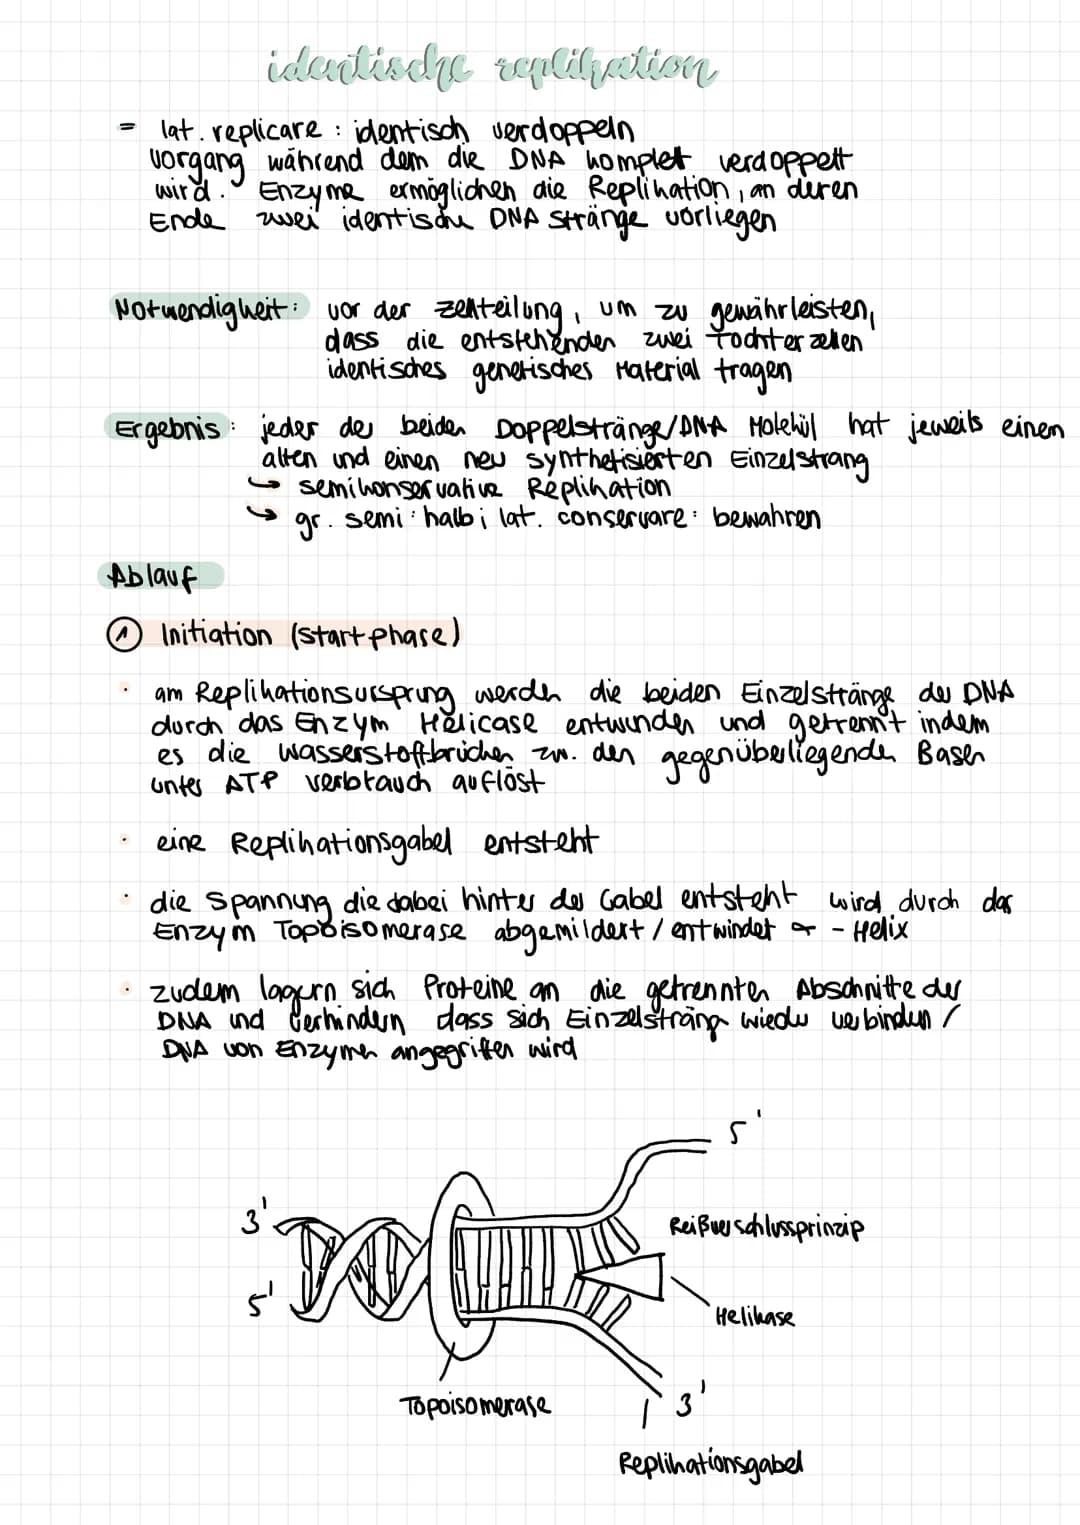 identische replikation
= lat. replicare : identisch verdoppeln
Vorgang während dem die DNA komplet verdoppelt
wird. Enzyme ermöglichen die Replikation, an deren
Ende zwei identische DNA Stränge vorliegen
Notwendigkeit: vor der Zellteilung, um zu gewährleisten,
dass die entstehenden zwei Tochterzellen
identisches genetisches Material tragen
Ergebnis: jeder der beiden Doppelstränge/DNA Molekül hat jeweils einen
alten und einen neu synthetisierten Einzelstrang
↳ semikonservative Replikation
↳ gr. semi: halb; lat. conservare: bewahren
Ablauf
① Initiation (Startphase)
• am Replikationsursprung werden die beiden Einzelstränge der DNA
durch das Enzym Helicase entwunden und getrennt indem
es die Wasserstoffbrücken zw. den gegenüberliegenden Basen
unter ATP verbrauch auflöst
• eine Replikationsgabel entsteht
• die Spannung die dabei hinter der Gabel entsteht wird durch das
Enzym Topoisomerase abgemildert / entwindet α - Helix
• zudem lagern sich Proteine an die getrennten Abschnitte der
DNA und verhindern dass sich Einzelstränge wieder verbinden /
DNA von Enzymen angegriffen wird
5'
3'
Reißverschlussprinzip
5'
Helikase
Topoisomerase
3'
Replikationsgabel